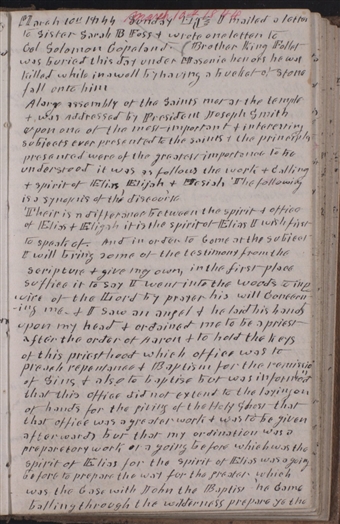 March 10th 1844 Sunday I mailed a letter
to Sister Sarah B Foss & wrote one letter to
Col Solomon Copeland. Brother King Follet
was buried this day under Masonic honors he was
killed while in a well by having a bucket of stone
fall onto him
A large assembly of the Saints met at the temple
& was addressed by President Joseph Smith
upon one of the most important & interesting
subjects ever presented to the saints & the principles
presented were of the greatest importance to be
understood it was as follows the work & Calling
& spirit of Elias, Elijah & Mesiah The following
is a synopsis of the discourse
Their is a difference between the spirit & office
of Elias & Elijah it is the spirit of Elias I wish first
to speak of. And in order to Come at the subject
I will bring some of the testimony from the
Scripture & give my own, in the first place
suffice it to say I went into the woods to inq
uire of the Lord by prayer his will Concern-
ing me. & I saw an angel & he laid his hands
upon my head & ordained me to be a priest
after the order of Aaron & to hold the keys
of this priesthood which office was to
preach repentance & Baptism for the remission
of Sins & also to baptise but was informed
that this office did not extend to the laying on
of hands for the giving of the Holy Ghost that
that office was a greater work & was to be given
afterwards but that my ordination was a
preparetory work or a going before which was the
spirit of Elias for the spirit of Elias was a going
before to prepare the way for the greater which
was the Case with John the Baptist he Came
balling through the wilderness prepare ye the